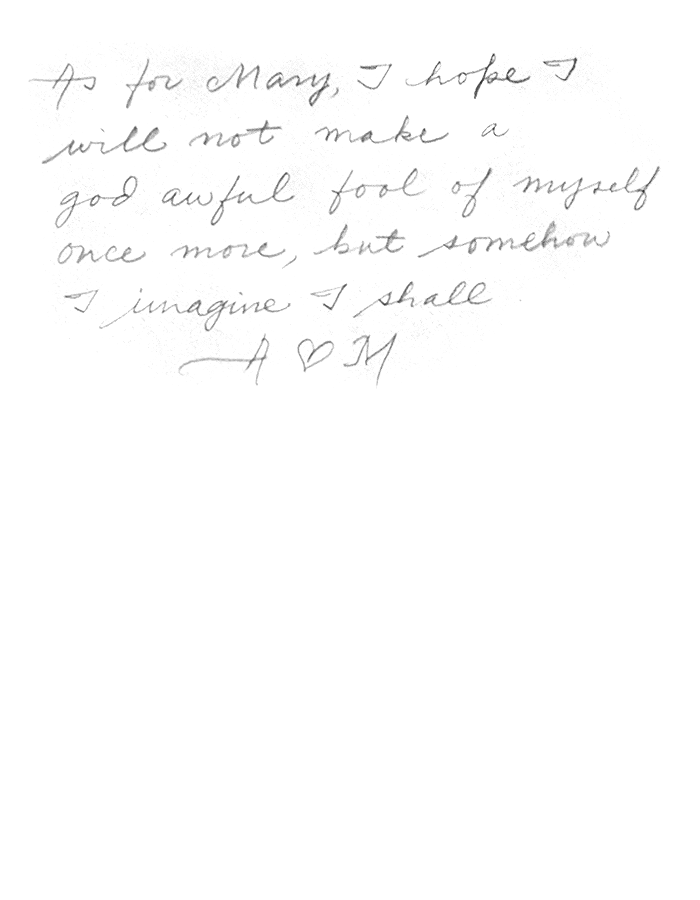 As for Mary, I hope I
will not make a
god awful fool of myself
once more, but somehow
I imagine I shall
—A ♡ M